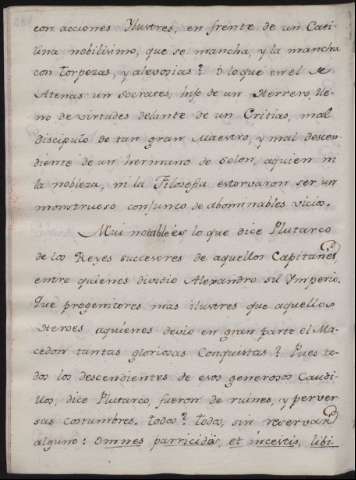 con acciones Ylustres, en frente de un Cati
lina nobilisimo, que se mancha, y la mancha
con torpezas, y alevosias? O lo que en el
Atenas un Socrates, hijo de un Herrero, lle
no de virtudes delante de un Critias, mal
discipulo de tan gran Maestro, y mal descen
diente de un hermano de Solon, aquien ni
la nobleza, ni la Filosofia estorvaron ser un
monstruoso conjunto de abominables vicios.
Mui notable es lo que dice Plutarco
de los Reyes succesores de aquellos Capitanes,
entre quienes dividio Alexandro su Ymperio.
Què progenitores mas ilustres que aquellos
Heroes aquienes devio en gran parte el Ma
cedon tantas gloriosas Conquistas? Pues to
dos los descendientes de esos generosos Caudi
llos, dice Plutarco, fueron de ruines, y perver
sas costumbres. todos? todos, sin reservar
alguno: Omnes parricidiis, et incestis, libi